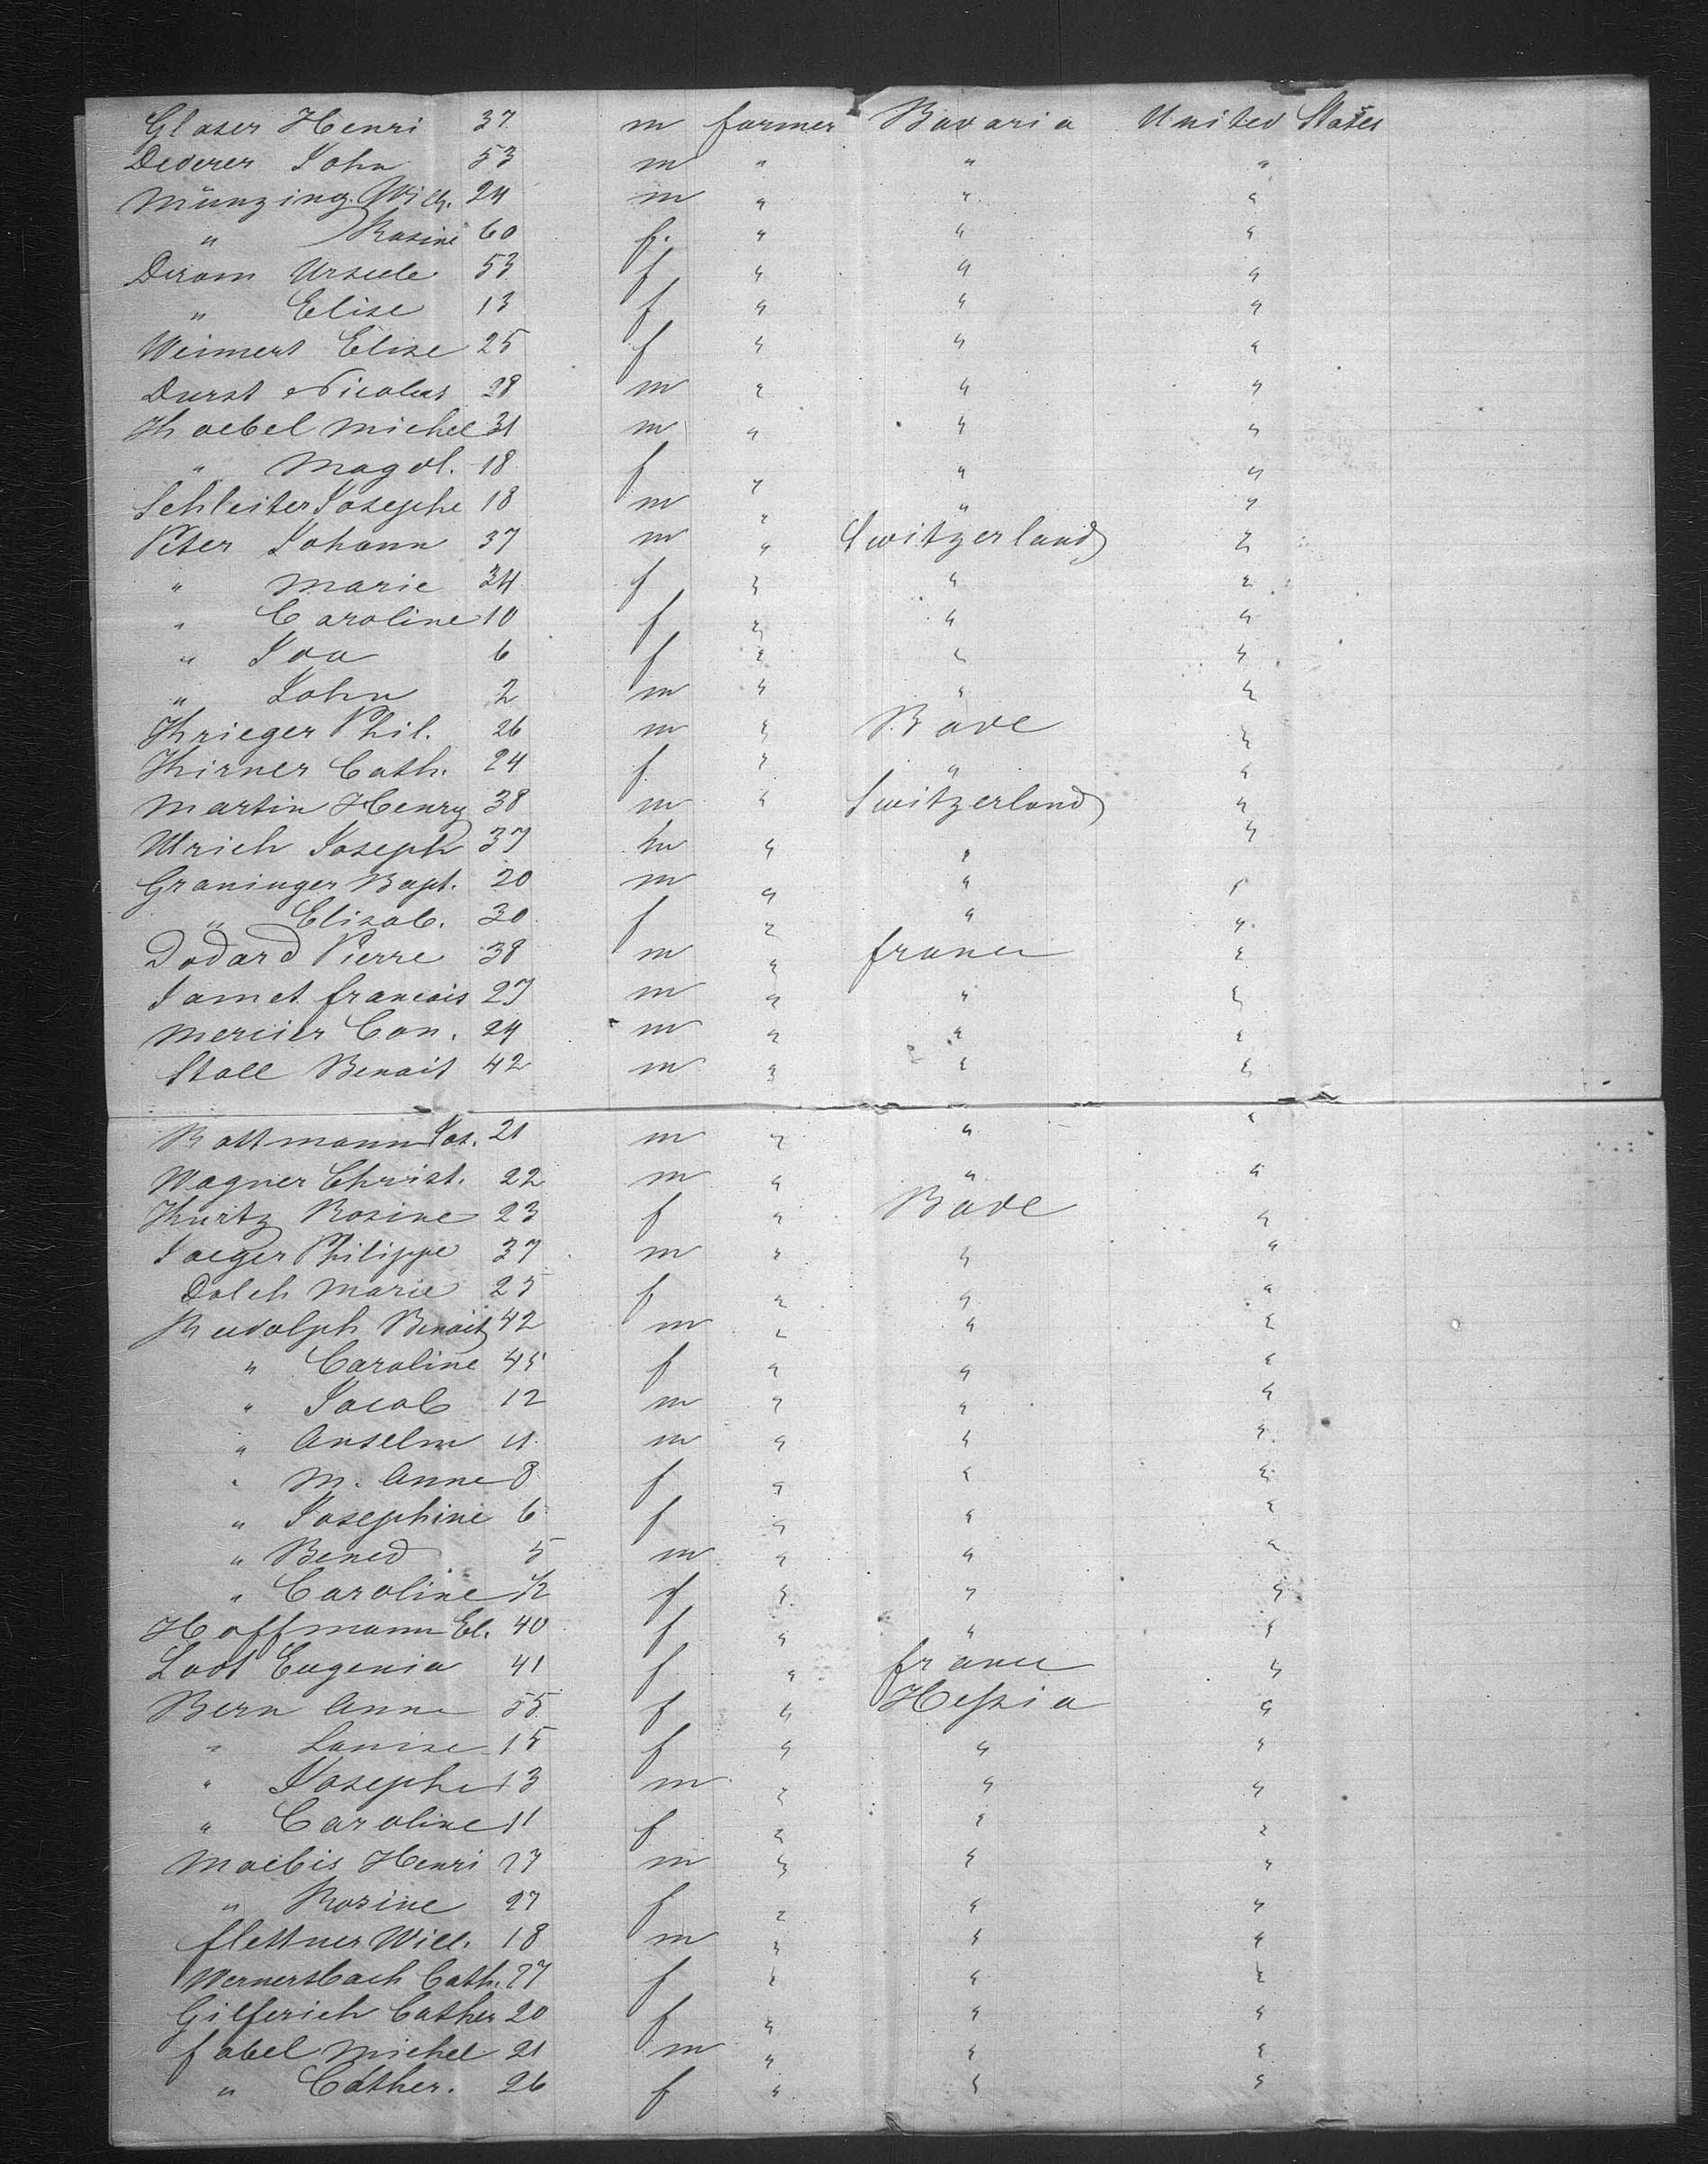 Glaser Henri 37 m farmer Bavaria United States
Dederer John 53 m " " "
Münzing Wilh. 24 m " " "
" Rosine 60 f. " " "
Dirom Ursule 53 f " " "
" Elise 13 f " " "
Weimert Elise 25 f " " "
Durst Nicolas 28 m " " "
Khoebel Michel 31 m " " "
" Magdl. 18 f " " "
Schleiter Josephe 18 m " " "
Peter Johann 37 m " Switzerland "
" Marie 34 f " " "
" Caroline 10 f " " "
" Ida 6 f " " "
" John 2 m " " "
Khrieger Phil. 26 m " Bade "
Khirner Cath. 24 f " " "
Martin Henry 38 m " Switzerland "
Ulrich Joseph 37 m " " "
Graninger Bapt. 20 m " " "
" Elisab. 30 f " " "
Dodard Pierre 38 m " france "
Jamet francois 27 m " " "
Mercier Con. 24 m " " "
Stall Benait 42 m " " "
Rottmann Jos. 21 m " " "
Wagner Christ. 22 m " " "
Khurtz Rosine 23 f " Bade "
Jaeger Philippe 37 m " " "
Dolch Marie 25 f " " "
Rudolph Benait 42 m " " "
" Caroline 45 f " " "
" Jacob 12 m " " "
" Anselm 11 m " " "
" M. Anne 8 f " " "
" Josephine 6 f " " "
" Bened 5 m " " "
" Caroline 1/2 f " " "
Hoffmann El. 40 f " " "
Lodt Eugenia 41 f " france "
Bern Anne 55 f " Heſsia "
" Louise 15 f " " "
" Josephe 13 m " " "
" Caroline 11 f " " "
Moebis Henri 27 m " " "
" Rosine 27 f " " "
flettner Will. 18 m " " "
Wernersbach Cath. 27 f " " "
Gilferich Cather 20 f " " "
fabel Michel 21 m " " "
" Cather. 26 f " " "